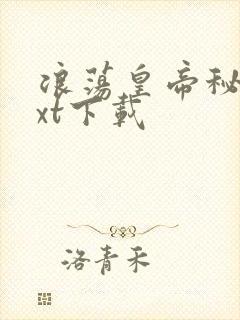 浪荡皇帝秘
xt下载
洛青禾